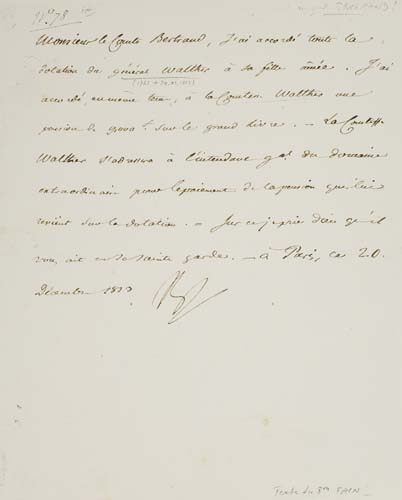 N° 78
Monsieur le Comte Bertrand, J'ai accordé toute la
dotation du général Walther à sa fille aînée. J'ai
accordé en même tems, à la Comtesse Walther une
pension de sur le grand livre. — La Comtesse
Walther s'adressera à l'intendant gal du domaine
extraordinaire pour le paiement de la pension qui lui
revient sur la dotation. — Sur ce je prie Dieu qu'il
vous ait en sa sainte garde. — à Paris, ce 20.
Décembre 1813
Texte du Bon FAIN